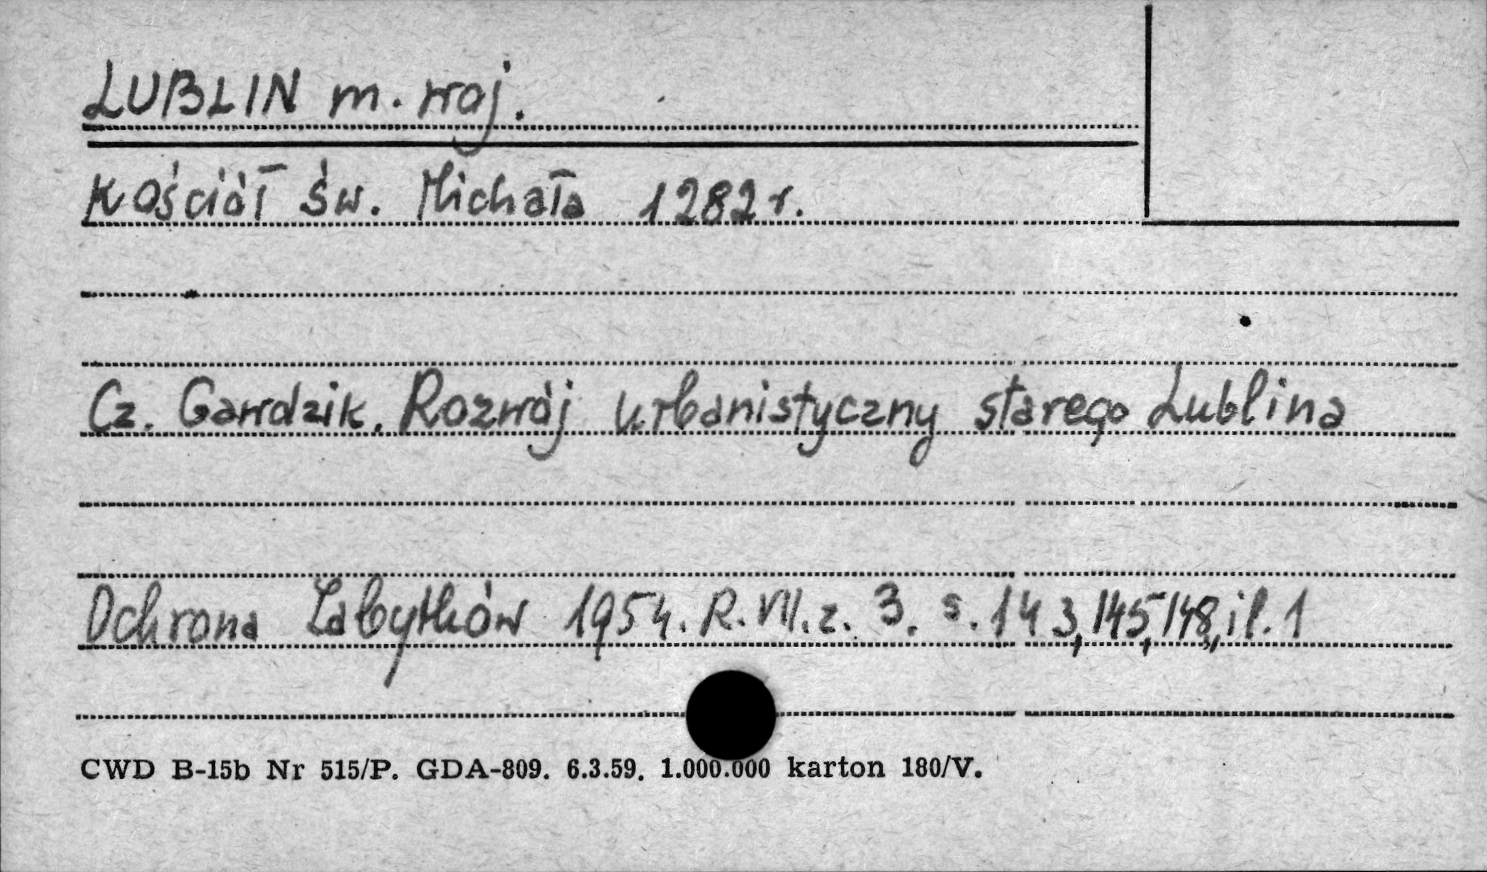 LUBLIN m. woj.
Kościół św. Michała 1282 r.
Cz. Gawdzik. Rozwój urbanistyczny starego Lublina
Ochrona Zabytków 1954. R. VII. z. 3. s. 143, 145, 148, il. 1
CWD B-15b Nr 515/P. GDA-809. 6.3.59. 1.000.000 karton 180/V.